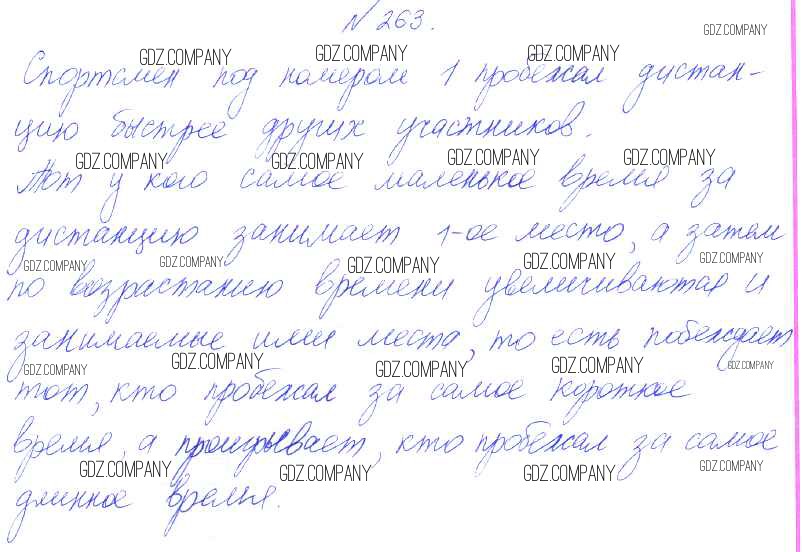 № 263.
GDZ.COMPANY
GDZ.COMPANY GDZ.COMPANY GDZ.COMPANY
Спортсмен под номером 1 пробежал дистан-
цию быстрее других участников.
GDZ.COMPANY GDZ.COMPANY GDZ.COMPANY GDZ.COMPANY
Тот у кого самое маленькое время за
дистанцию занимает 1-ое место, а затем
GDZ.COMPANY GDZ.COMPANY GDZ.COMPANY GDZ.COMPANY GDZ.COMPANY
по возрастанию времени увеличиваются и
занимаемые ими места, то есть побеждает
GDZ.COMPANY GDZ.COMPANY GDZ.COMPANY GDZ.COMPANY GDZ.COMPANY
тот, кто пробежал за самое короткое
время, а проигрывает, кто пробежал за самое
GDZ.COMPANY GDZ.COMPANY GDZ.COMPANY GDZ.COMPANY
длинное время.